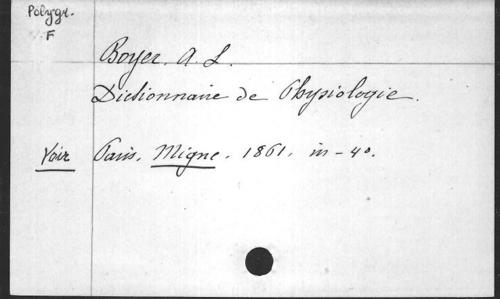 Polygr.
F
Boyer. A. L.
Dictionnaire de Physiologie.
Voir Paris. Migne. 1861. in-4º.